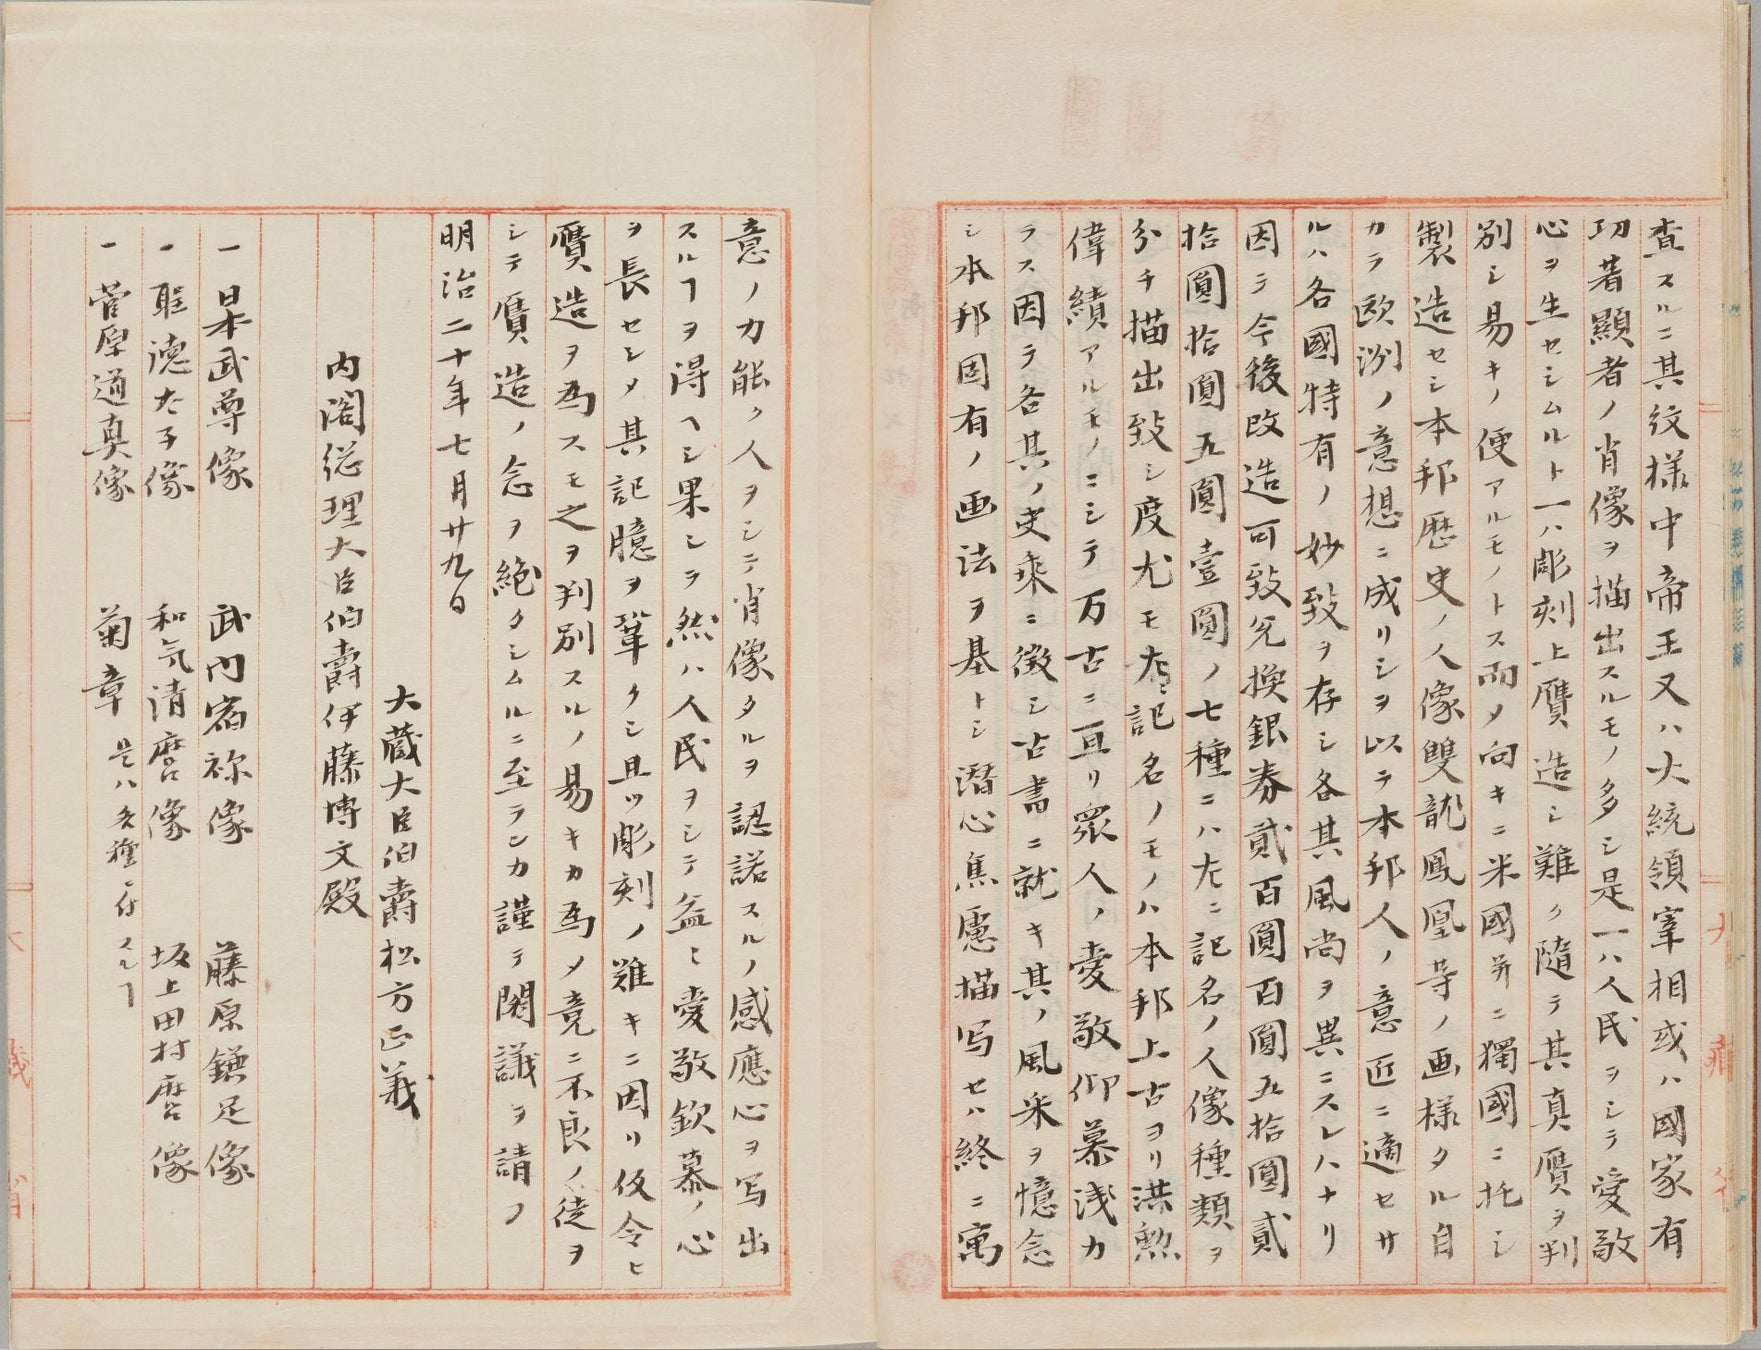 査スルニ其紋様中帝王又ハ大統領宰相或ハ國家有
功著顯者ノ肖像ヲ描出スルモノ多シ是一ハ人民ヲシテ愛敬
心ヲ生セシムルト一ハ彫刻上贋造シ難ク隨テ其真贋ヲ判
別シ易キノ便アルモノトス而〆向キニ米國并ニ獨國ニ托シ
製造セシ本邦歴史ノ人像雙龍鳳凰等ノ画様タル自
カラ欧洲ノ意想ニ成リシヲ以テ本邦人ノ意匠ニ適セサ
ルハ各國特有ノ妙致ヲ存シ各其風尚ヲ異ニスレハナリ
因テ今後改造可致兌換銀券貳百圓百圓五拾圓貳
拾圓拾圓五圓壹圓ノ七種ニハ左ニ記名ノ人像種類ヲ
分チ描出致シ度尤モ左記名ノモノハ本邦上古ヨリ洪勲
偉績アルモノニシテ万古ニ亘リ衆人ノ愛敬仰慕浅カ
ラス因テ各其ノ史乗ニ徴シ古書ニ就キ其ノ風采ヲ憶念
シ本邦固有ノ画法ヲ基トシ潜心焦慮描写セハ終ニ寓
意ノ力能ク人ヲシテ肖像タルヲ認諾スルノ感應心ヲ写出
スルヿヲ得ヘシ果シテ然ハ人民ヲシテ益〻愛敬欽慕ノ心
ヲ長セシメ其記臆ヲ鞏クシ且ツ彫刻ノ難キニ因リ仮令ヒ
贋造ヲ為スモ之ヲ判別スルノ易キカ為メ竟ニ不良ノ徒ヲ
シテ贋造ノ念ヲ絶タシムルニ至ランカ謹テ閣議ヲ請フ
明治二十年七月廿九日
大蔵大臣伯爵松方正義
内閣総理大臣伯爵伊藤博文殿
一 日本武尊像 武内宿祢像 藤原鎌足像
一 聖徳太子像 和気清麿像 坂上田村麿像
一 菅原道真像 菊章 是ハ各種ニ付スルヿ